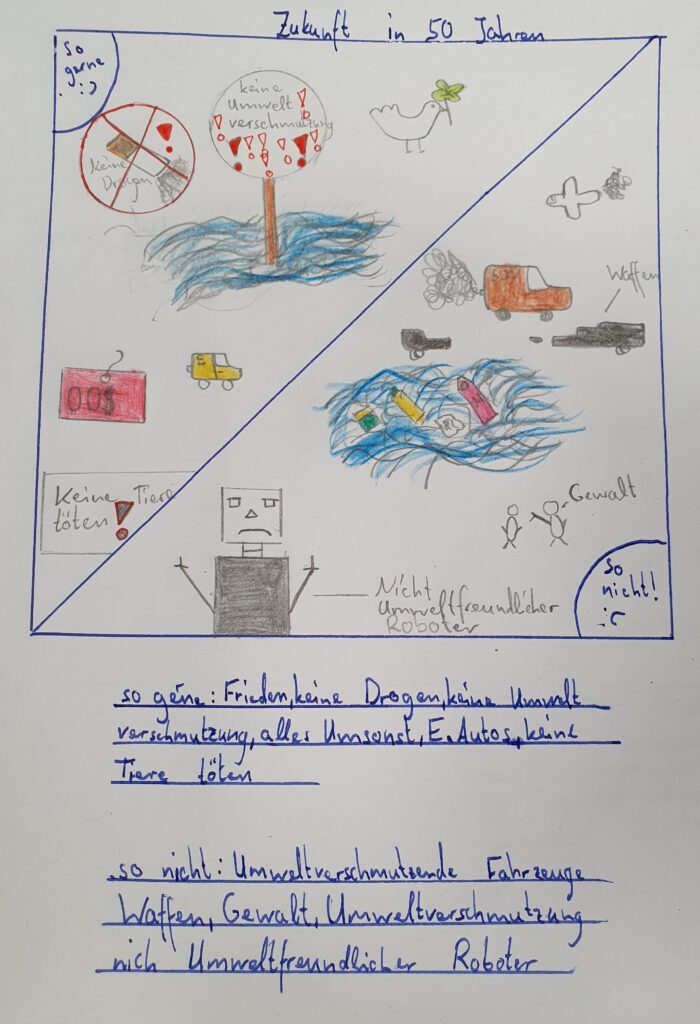 Zukunft in 50 Jahren
so
gerne
:)
keine
Umwelt
verschmutzung
Keine
Drogen
Waffen
E
00$
Keine Tiere
töten!
Gewalt
so
nicht!
:(
Nicht
Umweltfreundlicher
Roboter
so gerne: Frieden, keine Drogen, keine Umwelt
verschmutzung, alles Umsonst, E.Autos, keine
Tiere töten
so nicht: Umweltverschmutzende Fahrzeuge
Waffen, Gewalt, Umweltverschmutzung
nich Umweltfreundlicher Roboter